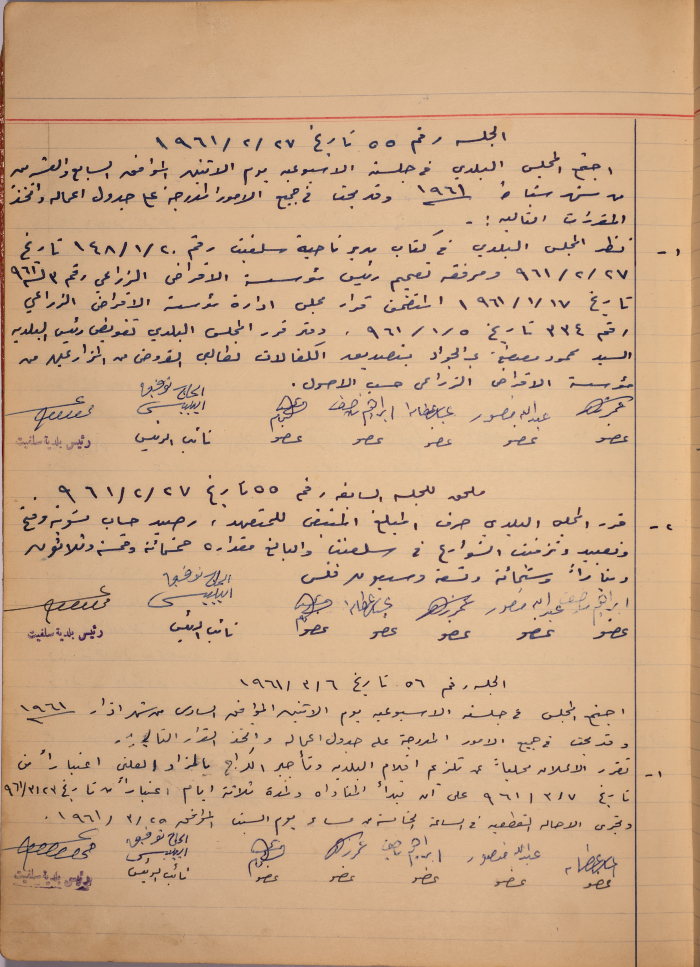 الجلسه رقم ٥٥ تاريخ ٢٧/٢/١٩٦١
اجتمع المجلس البلدي في جلسته الاسبوعيه يوم الاثنين الموافق السابع والعشرين
من شهر شباط ١٩٦١ وقد بحث في جميع الامور المدرجة على جدول اعماله واتخذ
المقررات التاليه :-
١- نظر المجلس البلدي في كتاب مدير ناحية سلفيت رقم ١٤٨/١/٢٠ تاريخ
٢٧/٢/٩٦١ ومرفقه تعميم رئيس مؤسسة الاقراض الزراعي رقم
تاريخ ١٧/١/١٩٦١ المتضمن قرار مجلس ادارة مؤسسة الاقراض الزراعي
رقم ٣٣٤ تاريخ ٥/١/٩٦١ . وقد قرر المجلس البلدي تفويض رئيس البلديه
السيد عبد الجواد بتصديق الكفالات لطالبي القروض من المزارعين من
مؤسسة الاقراض الزراعي حسب الاصول .
عبدالله منصور ابراهيم الحاج توفيق
عضو عضو عضو عضو عضو نائب الرئيس رئيس بلدية سلفيت
ملحق للجلسه السابقه رقم ٥٥ تاريخ ٢٧/٢/٩٦١
٢- قرر المجلس البلدي صرف المبلغ المتبقي للمتعهد ، رصيد حساب تسوية وفتح
وتعبيد وتزفيت الشوارع في سلفيت والبالغ مقداره خمسمائة وخمسة وثلاثون
ديناراً وستمائة وتسعة وسبعون فلس
ابراهيم عبدالله منصور الحاج توفيق
عضو عضو عضو عضو عضو نائب الرئيس رئيس بلدية سلفيت
الجلسه رقم ٥٦ تاريخ ٦/٣/١٩٦١
اجتمع المجلس في جلسته الاسبوعيه يوم الاثنين الموافق السادس من شهر اذار ١٩٦١
وقد بحث في جميع الامور المدرجة على جدول اعماله واتخذ القرار التالي :-
١- تقرر الاعلان محلياً عن تلزيم اقلام البلديه وتأجير الكراج بالمزاد العلني اعتباراً من
تاريخ ٧/٣/٩٦١ على ان تبدأ المناداه ولمدة ثلاثة ايام اعتباراً من تاريخ ٢٣/٣/٩٦١
وتجري الاحاله القطعيه في الساعة الخامسة من مساء يوم السبت الموافق ٢٥/٣/٩٦١ .
عبدالله منصور ابراهيم الحاج توفيق
عضو عضو عضو عضو عضو نائب الرئيس رئيس بلدية سلفيت